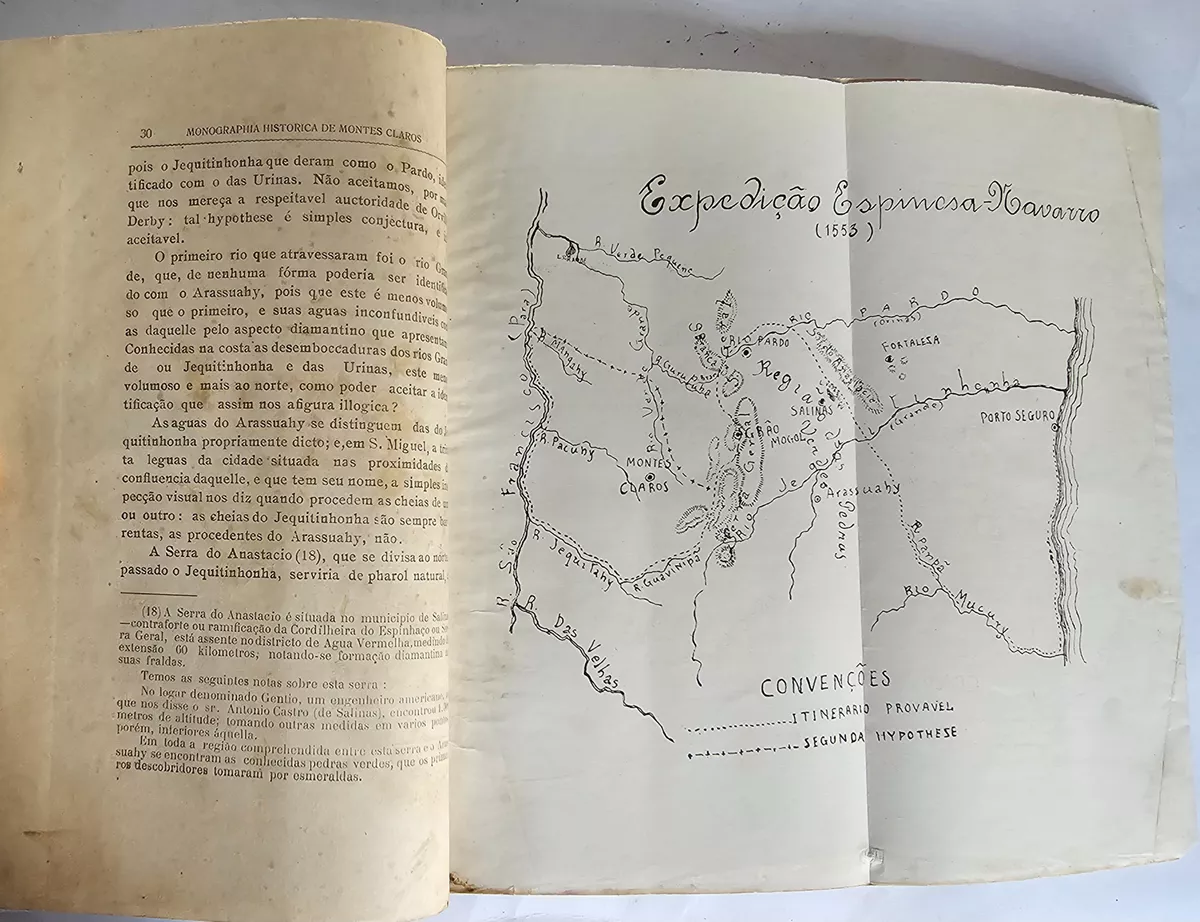 30 MONOGRAPHIA HISTORICA DE MONTES CLAROS
pois o Jequitinhonha que deram como o Pardo,
tificado com o das Urinas. Não aceitamos, por
que nos mereça a respeitavel auctoridade de
Derby: tal hypothese é simples conjectura, é
aceitavel.
O primeiro rio que atravessaram foi o rio
de, que, de nenhuma fórma poderia ser
do com o Arassuahy, pois que este é menos
so que o primeiro, e suas aguas inconfundiveis
as daquelle pelo aspecto diamantino que
Conhecidas na costa as desemboccaduras dos rios
de ou Jequitinhonha e das Urinas, este
volumoso e mais ao norte, como poder aceitar a
tificação que assim nos afigura illogica?
As aguas do Arassuahy se distinguem das do
quitinhonha propriamente dicto; e, em S. Miguel, a
ta leguas da cidade situada nas proximidades
confluencia daquelle, e que tem seu nome, a simples
pecção visual nos diz quando procedem as cheias de
ou outro: as cheias do Jequitinhonha são sempre
rentas, as procedentes do Arassuahy, não.
A Serra do Anastacio (18), que se divisa ao
passado o Jequitinhonha, serviria de pharol natural,
(18) A Serra do Anastacio é situada no municipio de
—contraforte ou ramificação da Cordilheira do Espinhaço ou
ra Geral, está assente no districto de Agua Vermelha, medindo
extensão 60 kilometros; notando-se formação diamantina
suas fraldas.
Temos as seguintes notas sobre esta serra:
No logar denominado Gentio, um engenheiro americano,
que nos disse o sr. Antonio Castro (de Salinas), encontrou
metros de altitude; tomando outras medidas em varios
porém, inferiores áquella.
Em toda a região comprehendida entre esta serra e o
suahy se encontram as conhecidas pedras verdes, que os
ros descobridores tomaram por esmeraldas.
Expedição Espinosa-Navarro
(1553)
R. Verde Pequeno
RIO PARDO
(Orinas)
RIO
PARDO
FORTALEZA
R. Mangahy
R. Gurutuba
Rio Verde
Região das Pedras Verdes
SALINAS
Jequitinhonha
(Grande)
PORTO SEGURO
GRÃO
MOGOL
Serra Geral
R. São Francisco
R. Pacuhy
MONTES
CLAROS
Arassuahy
R. Jequitahy
R. Guavinipa
R. Pampã
RIO Mucury
R. Das Velhas
CONVENÇÕES
ITINERARIO PROVAVEL
SEGUNDA HYPOTHESE